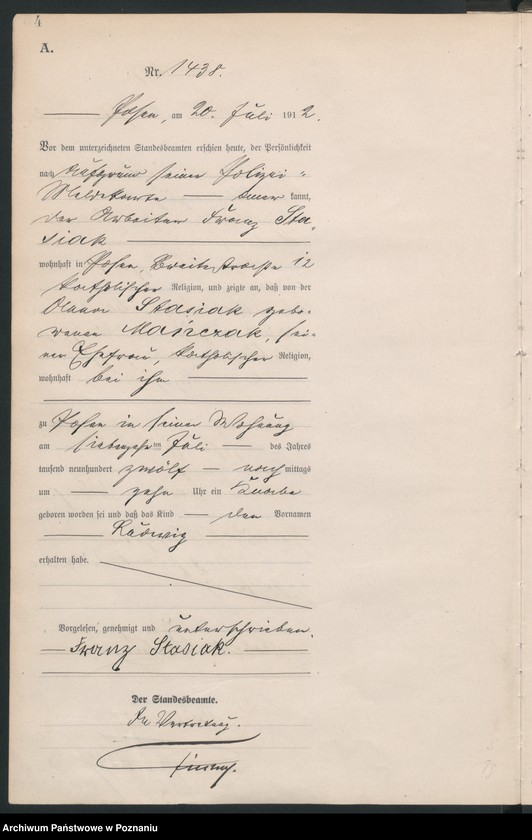 4
A.
Nr. 1438.
Posen, am 20. Juli 1912.
Vor dem unterzeichneten Standesbeamten erschien heute, der Persönlichkeit
nach auf Grund seiner Polizei-
Meldekarte kannt,
der Arbeiter Franz Sta-
siak
wohnhaft in Posen, Breitestraße 12
katholischer Religion, und zeigte an, daß von der
Stasiak gebo-
renen Mańczak, sei-
ner Ehefrau, katholischer Religion,
wohnhaft bei ihm
zu Posen in seiner Wohnung
am siebenzehnten Juli des Jahres
tausend neunhundert zwölf nachmittags
um zehn Uhr ein Knabe
geboren worden sei und daß das Kind den Vornamen
Ludwig
erhalten habe.
Vorgelesen, genehmigt und unterschrieben.
Franz Stasiak.
Der Standesbeamte.
In Vertretung.
Archiwum Państwowe w Poznaniu